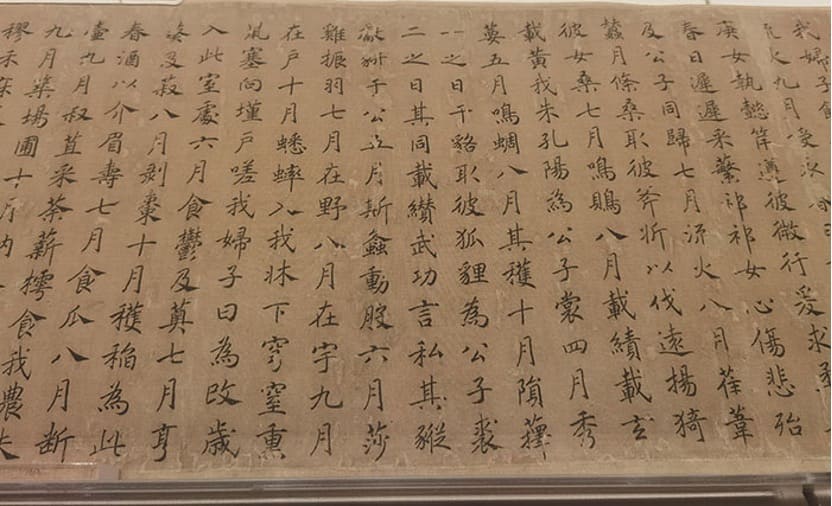 我婦子
流火九月授衣
庚女執懿筐遵彼微行爰求柔
春日遲遲采蘩祁祁女心傷悲殆
及公子同歸七月流火八月萑葦
蠶月條桑取彼斧斨以伐遠揚猗
彼女桑七月鳴鵙八月載績載玄
載黃我朱孔陽為公子裳四月秀
葽五月鳴蜩八月其穫十月隕蘀
一之日于貉取彼狐貍為公子裘
二之日其同載纘武功言私其豵
獻豜于公五月斯螽動股六月莎
雞振羽七月在野八月在宇九月
在戶十月蟋蟀入我牀下穹窒熏
鼠塞向墐戶嗟我婦子曰為改歲
入此室處六月食鬱及薁七月亨
葵及菽八月剝棗十月穫稻為此
春酒以介眉壽七月食瓜八月斷
壺九月叔苴采荼薪樗食我農夫
九月築場圃十月納
穋禾麻